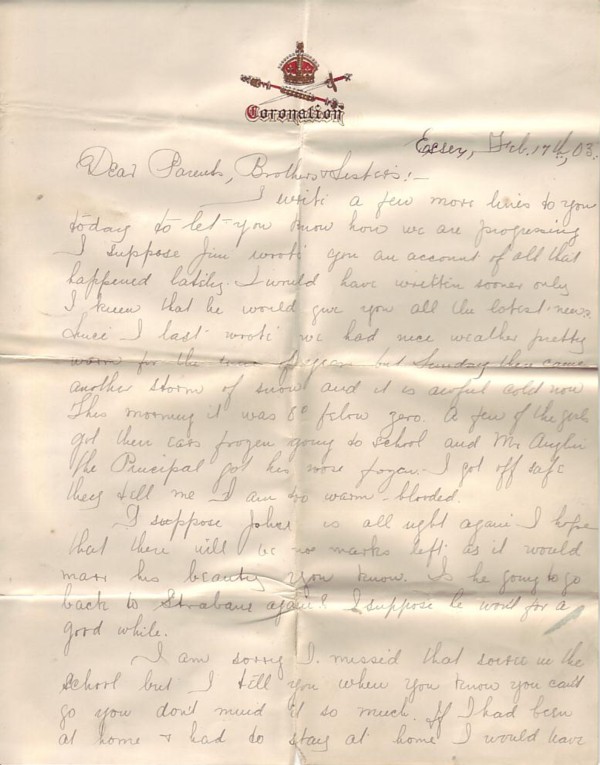 Coronation
Essex, Feb. 17th, 03.
Dear Parents, Brothers & Sisters:-
I write a few more lines to you
today to let you know how we are progressing
I suppose Jim wrote you an account of all that
happened lately. I would have written sooner only
I knew that he would give you all the latest news
Since I last wrote we had nice weather pretty
warm for the time of year but Sunday there came
another storm of snow and it is awful cold now
This morning it was 8° below zero. A few of the girls
got their ears frozen going to school and Mr Anglin
the Principal got his nose frozen. I got off safe
they tell me I am too warm-blooded.
I suppose John is all right again I hope
that there will be no marks left as it would
marr his beauty you know. Is he going to go
back to Strabane again? I suppose he won't for a
good while.
I am sorry I missed that soiree in the
school but I tell you when you know you can't
go you don't mind it so much. If I had been
at home & had to stay at home I would have